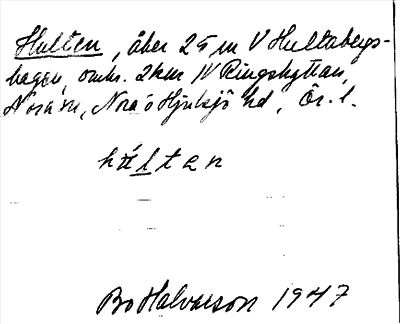 Hulten, åker 25 m V Hultabergs-
hagen, omkr. 2 km N Ringshyttan,
Nora sn, Nora o Hjulsjö hd, Ör. l.
hulten
Bo Halvarson 1947